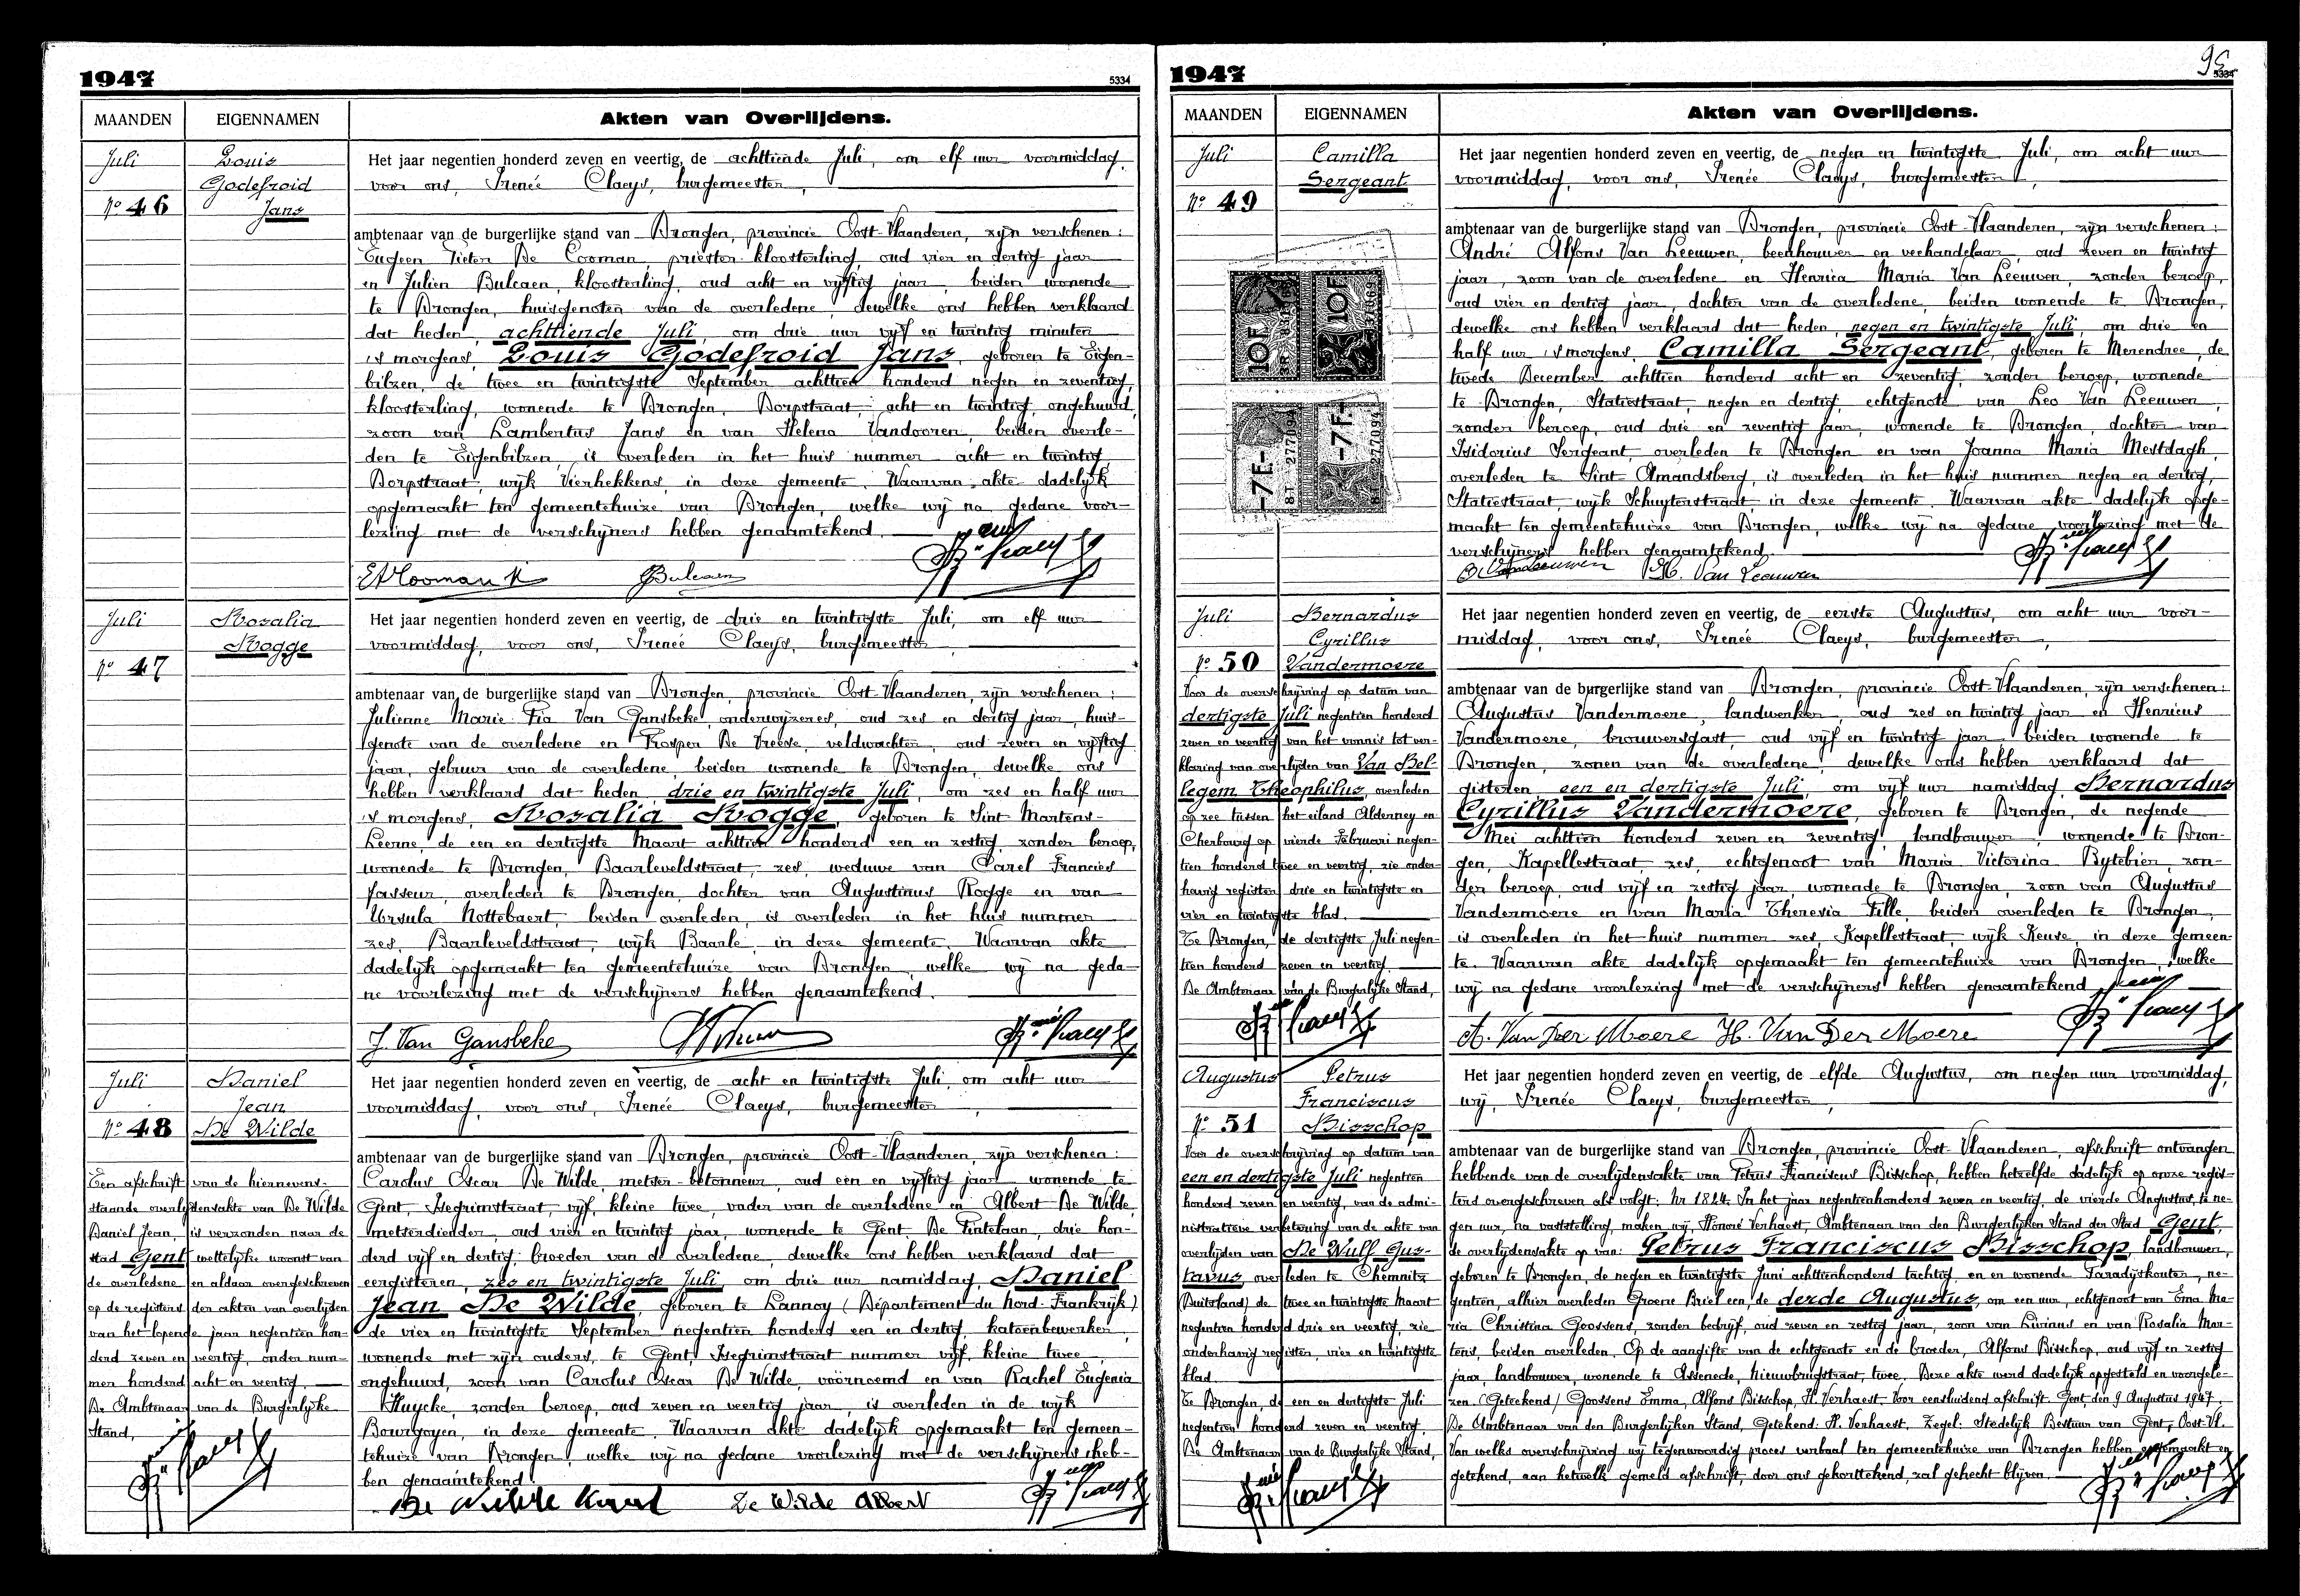 1947
5334
MAANDEN
EIGENNAMEN
Akten van Overlijdens.
Juli
Louis
Godefroid
Nº 46
Jans
Het jaar negentien honderd zeven en veertig, de achttiende Juli, om elf uur voormiddag,
voor ons, Irenée Claeys, burgemeester,
ambtenaar van de burgerlijke stand van Drongen, provincie Oost-Vlaanderen, zijn verschenen:
Eugeen Pieter De Cooman, priester-kloosterling, oud vier en dertig jaar
en Julien Bulcaen, kloosterling, oud acht en vijftig jaar, beiden wonende
te Drongen, huisgenoten van de overledene, dewelke ons hebben verklaard
dat heden, achttiende Juli, om drie uur vijf en twintig minuten
's morgens, Louis Godefroid Jans, geboren te Eigen-
bilzen, de twee en twintigste September achttien honderd negen en zeventig,
kloosterling, wonende te Drongen, Dorpstraat, acht en twintig, ongehuwd,
zoon van Lambertus Jans en van Helena Vandooren, beiden overle-
den te Eigenbilzen, is overleden in het huis nummer acht en twintig
Dorpstraat, wijk Vierhekkens, in deze gemeente. Waarvan akte dadelijk
opgemaakt ten gemeentehuize van Drongen, welke wij na gedane voor-
lezing met de verschijners hebben genaamtekend.
Bulcaen
Juli
Rosalia
Rogge
Nº 47
Het jaar negentien honderd zeven en veertig, de drie en twintigste Juli, om elf uur
voormiddag, voor ons, Irenée Claeys, burgemeester,
ambtenaar van de burgerlijke stand van Drongen, provincie Oost-Vlaanderen, zijn verschenen:
Julienne Marie-Pia Van Gansbeke, onderwijzeres, oud zes en dertig jaar, huis-
genote van de overledene en Prosper De Vreese, veldwachter, oud zeven en vijftig
jaar, gebuur van de overledene, beiden wonende te Drongen, dewelke ons
hebben verklaard dat heden, drie en twintigste Juli, om zes en half uur
's morgens, Rosalia Rogge, geboren te Sint-Martens-
Leerne, de een en dertigste Maart achttien honderd een en zestig, zonder beroep,
wonende te Drongen, Baarleveldstraat, zes, weduwe van Carel Francies
Vasseur, overleden te Drongen, dochter van Augustinus Rogge en van
Ursula Nottebaert, beiden overleden, is overleden in het huis nummer
zes, Baarleveldstraat, wijk Baarle, in deze gemeente. Waarvan akte
dadelijk opgemaakt ten gemeentehuize van Drongen, welke wij na geda-
ne voorlezing met de verschijners hebben genaamtekend.
J. Van Gansbeke
Juli
Daniel
Jean
Nº 48
De Wilde
Een afschrift van de hiernevens-
staande overlijdensakte van De Wilde
Daniel Jean, is verzonden naar de
stad Gent wettelijke woonst van
de overledene en aldaar overgeschreven
op de registers der akten van overlijden
van het lopende jaar negentien hon-
derd zeven en veertig, onder num-
mer honderd acht en veertig,
De Ambtenaar van de Burgerlijke
Stand,
Het jaar negentien honderd zeven en veertig, de acht en twintigste Juli, om acht uur
voormiddag, voor ons, Irenée Claeys, burgemeester,
ambtenaar van de burgerlijke stand van Drongen, provincie Oost-Vlaanderen, zijn verschenen:
Carolus Oscar De Wilde, metser-betonneur, oud een en vijftig jaar, wonende te
Gent, Isegrimstraat, vijf, kleine twee, vader van de overledene en Albert De Wilde,
metserdiender, oud vier en twintig jaar, wonende te Gent, De Pintelaan, drie hon-
derd vijf en dertig, broeder van de overledene, dewelke ons hebben verklaard dat
eergisteren, zes en twintigste Juli, om drie uur namiddag, Daniel
Jean De Wilde, geboren te Lannoy (Département du Nord-Frankrijk)
de vier en twintigste September negentien honderd een en dertig, katoenbewerker,
wonende met zijn ouders, te Gent, Isegrimstraat nummer vijf, kleine twee,
ongehuwd, zoon van Carolus Oscar De Wilde, voornoemd en van Rachel Eugenia
Huycke, zonder beroep, oud zeven en veertig jaar, is overleden in de wijk
Bourgoyen, in deze gemeente. Waarvan akte dadelijk opgemaakt ten gemeen-
tehuize van Drongen, welke wij na gedane voorlezing met de verschijners heb-
ben genaamtekend.
De Wilde Karel De Wilde Albert
1947
95
5334
MAANDEN
EIGENNAMEN
Akten van Overlijdens.
Juli
Camilla
Sergeant
Nº 49
10F
10F
-7F.-
-7F.-
Het jaar negentien honderd zeven en veertig, de negen en twintigste Juli, om acht uur
voormiddag, voor ons, Irenée Claeys, burgemeester,
ambtenaar van de burgerlijke stand van Drongen, provincie Oost-Vlaanderen, zijn verschenen:
André Alfons Van Leeuwen, beenhouwer en veehandelaar, oud zeven en twintig
jaar, zoon van de overledene en Henrica Maria Van Leeuwen, zonder beroep,
oud vier en dertig jaar, dochter van de overledene, beiden wonende te Drongen,
dewelke ons hebben verklaard dat heden, negen en twintigste Juli, om drie en
half uur 's morgens, Camilla Sergeant, geboren te Merendree, de
tweede December achttien honderd acht en zeventig, zonder beroep, wonende
te Drongen, Statiestraat, negen en dertig, echtgenote van Leo Van Leeuwen,
zonder beroep, oud drie en zeventig jaar, wonende te Drongen, dochter van
Isidorius Sergeant, overleden te Drongen en van Joanna Maria Mestdagh,
overleden te Sint-Amandsberg, is overleden in het huis nummer negen en dertig,
Statiestraat, wijk Schuyterstraat, in deze gemeente. Waarvan akte dadelijk opge-
maakt ten gemeentehuize van Drongen, welke wij na gedane voorlezing met de
verschijners hebben genaamtekend.
H. Van Leeuwen
Juli
Bernardus
Cyrillus
Nº 50
Vandermoere
Voor de overschrijving op datum van
dertigste Juli negentien honderd
zeven en veertig van het vonnis tot ver-
klaring van overlijden van Van Bel-
legem Theophilus, overleden
op zee tussen het eiland Alderney en
Cherbourg op vierde Februari negen-
tien honderd twee en veertig, zie onder-
havig register drie en twintigste en
vier en twintigste blad.
Te Drongen, de dertigste Juli negen-
tien honderd zeven en veertig.
De Ambtenaar van de Burgerlijke Stand,
Het jaar negentien honderd zeven en veertig, de eerste Augustus, om acht uur voor-
middag, voor ons, Irenée Claeys, burgemeester,
ambtenaar van de burgerlijke stand van Drongen, provincie Oost-Vlaanderen, zijn verschenen:
Augustus Vandermoere, landwerker, oud zes en twintig jaar en Henricus
Vandermoere, brouwersgast, oud vijf en twintig jaar, beiden wonende te
Drongen, zonen van de overledene, dewelke ons hebben verklaard dat
gisteren, een en dertigste Juli, om vijf uur namiddag, Bernardus
Cyrillus Vandermoere, geboren te Drongen, de negende
Mei achttien honderd zeven en zeventig, landbouwer, wonende te Dron-
gen, Kapellestraat, zes, echtgenoot van Maria Victorina Bytebier, zon-
der beroep, oud vijf en zestig jaar, wonende te Drongen, zoon van Augustus
Vandermoere en van Maria Theresia Fille, beiden overleden te Drongen,
is overleden in het huis nummer zes, Kapellestraat, wijk Keuze, in deze gemeen-
te. Waarvan akte dadelijk opgemaakt ten gemeentehuize van Drongen, welke
wij na gedane voorlezing met de verschijners hebben genaamtekend.
A. Van Der Moere H. Van Der Moere
Augustus
Petrus
Franciscus
Nº 51
Bisschop
Voor de overschrijving op datum van
een en dertigste Juli negentien
honderd zeven en veertig, van de admi-
nistratieve verbetering van de akte van
overlijden van De Wulf Gus-
tavus, overleden te Chemnitz
(Duitsland) de twee en twintigste Maart
negentien honderd drie en veertig, zie
onderhavig register, vier en twintigste
blad.
Te Drongen, de een en dertigste Juli
negentien honderd zeven en veertig.
De Ambtenaar van de Burgerlijke Stand,
Het jaar negentien honderd zeven en veertig, de elfde Augustus, om negen uur voormiddag,
wij, Irenée Claeys, burgemeester,
ambtenaar van de burgerlijke stand van Drongen, provincie Oost-Vlaanderen, afschrift ontvangen
hebbende van de overlijdensakte van Petrus Franciscus Bisschop, hebben hetzelfde dadelijk op onze regis-
ters overgeschreven als volgt: Nr 1824. In het jaar negentienhonderd zeven en veertig, de vierde Augustus, te ne-
gen uur, na vaststelling, maken wij Honoré Verhaest, Ambtenaar van den Burgerlijken Stand der Stad Gent,
de overlijdensakte op van: Petrus Franciscus Bisschop, landbouwer,
geboren te Drongen, de negen en twintigste Juni achttienhonderd tachtig, en en wonende Paradijskouter, ne-
gentien, alhier overleden Groene Briel een, de derde Augustus, om een uur, echtgenoot van Ema Ma-
ria Christina Goossens, zonder bedrijf, oud zeven en zestig jaar, zoon van Livinus en van Rosalia Mar-
tens, beiden overleden. Op de aangifte van de echtgenote en de broeder, Alfons Bisschop, oud vijf en zestig
jaar, landbouwer, wonende te Assenede, Nieuwbrugstraat, twee. Deze akte werd dadelijk opgesteld en voorgele-
zen. (Getekend) Goossens Emma, Alfons Bisschop, H. Verhaest. Voor eensluidend afschrift. Gent, den 9 Augustus 1947.
De Ambtenaar van den Burgerlijken Stand, Getekend: H. Verhaest. Zegel: Stedelijk Bestuur van Gent, Oost-Vl.
Van welke overschrijving wij tegenwoordig proces verbaal ten gemeentehuize van Drongen hebben opgemaakt en
getekend, aan hetwelk gemeld afschrift, door ons gekorttekend, zal gehecht blijven.